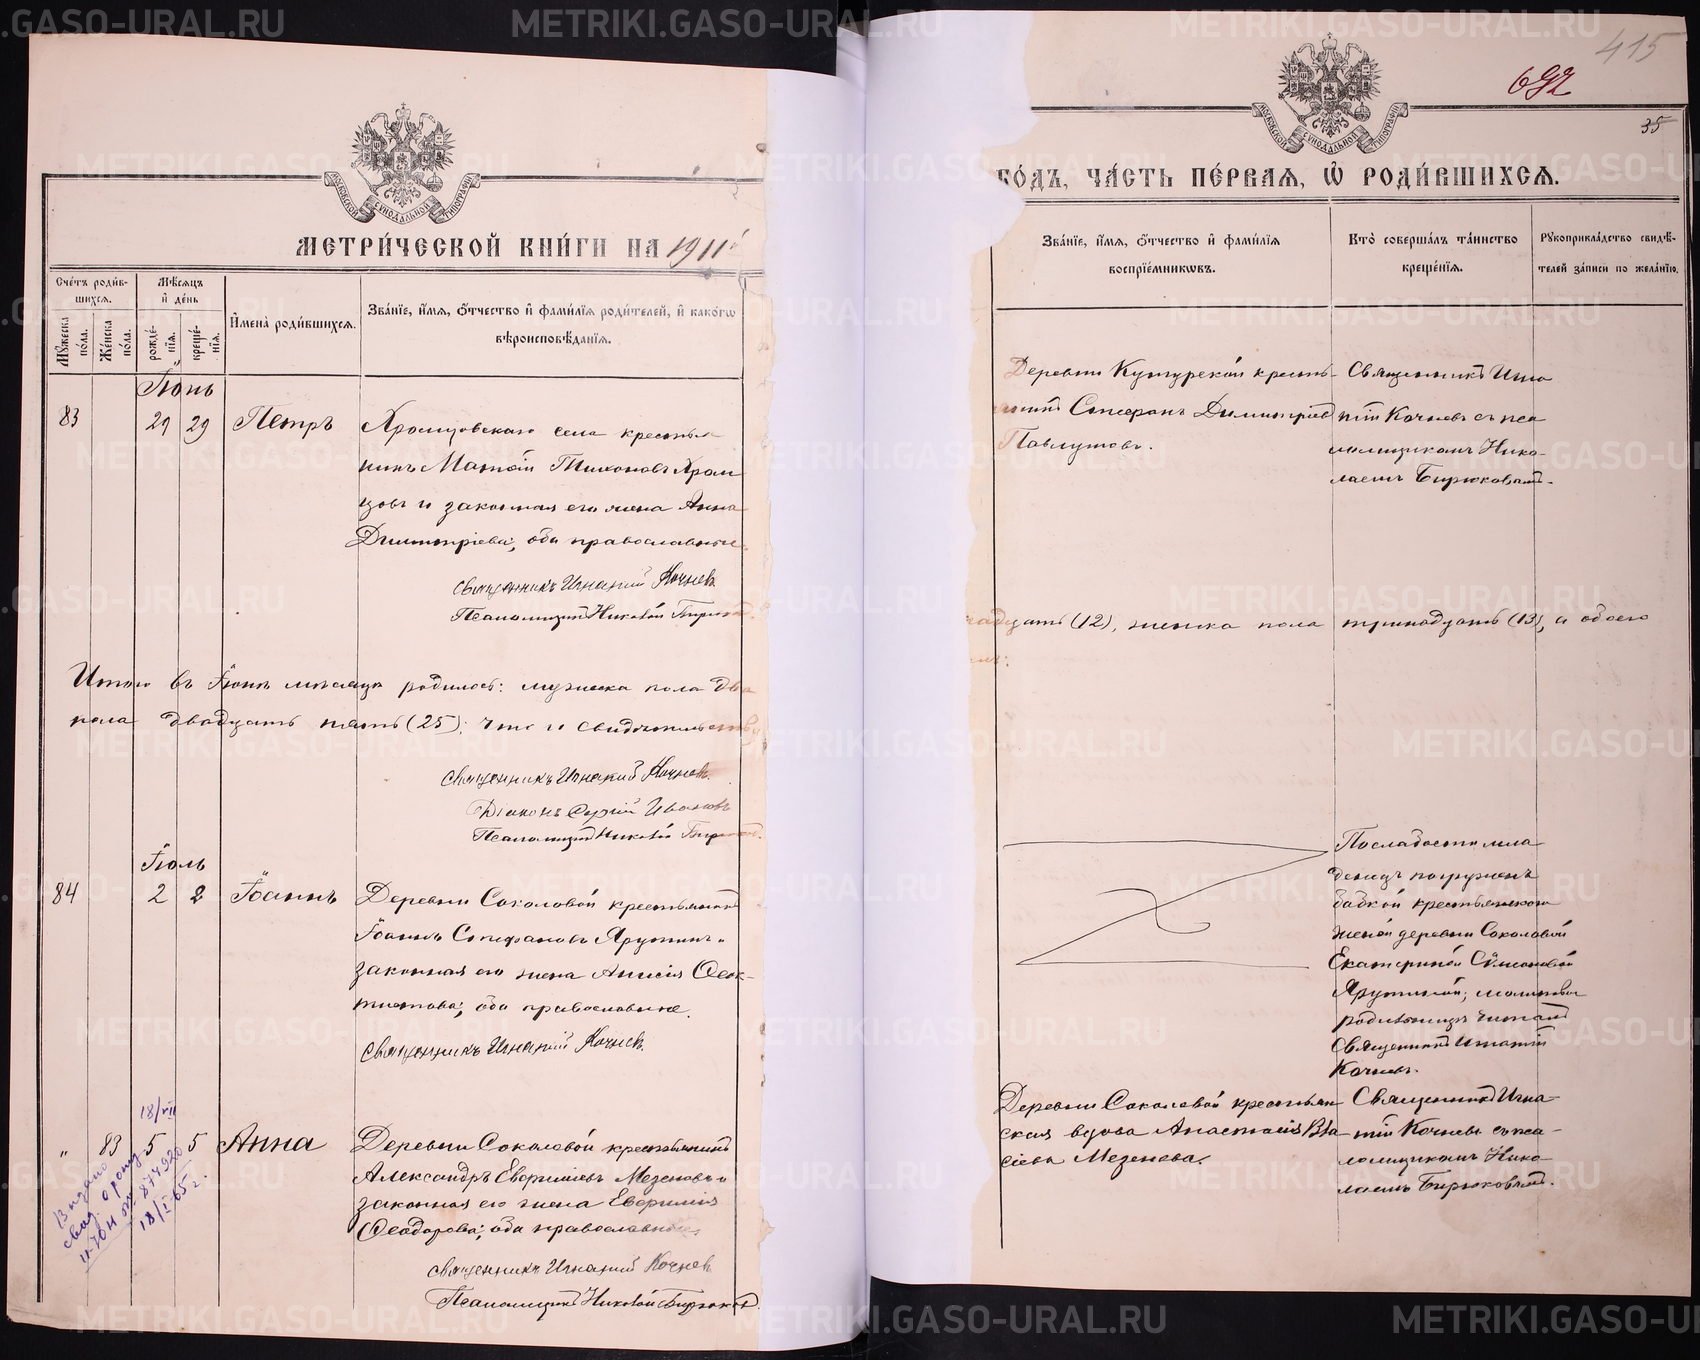 МЕТРИ́ЧЕСКОЙ КНИ́ГИ НА 1911
Сче́тъ роди́в-
шихся.
Мѣ́сяцъ
и҆ де́нь
Мꙋ́жеска
по́ла.
Же́нска
по́ла.
рожде́-
нїѧ.
креще́-
нїѧ.
И҆мена̀ роди́вшихсѧ.
Зва́нїе, и҆́мѧ, ѻ҆́тчество и҆ фами́лїѧ роди́телей, и҆ како́гѡ
вѣроисповѣ́данїѧ.
Іюнь
83 29 29 Петръ
Храмцовскаго села крестья
нинъ Матѳій Тихоновъ Храм
цовъ и законная его жена Анна
Димитріева; оба православные
Священникъ Игнатий Кочнев.
Псаломщикъ Николай Бирюков.
Итого въ Іюнѣ мѣсяцѣ родилось: мужеска пола два
пола двадцать пять (25); что и свидѣтельству
Священникъ Игнатий Кочнев.
Діаконъ Сергій Ивановъ
Псаломщикъ Николай Бирюков.
Іюль
84 2 2 Іоаннъ
Деревни Соколовой крестьянинъ
Іоаннъ Стефановъ Ярутинъ и
законная его жена Анисія Ѳеок-
тистова; оба православные.
Священникъ Игнатий Кочнев.
18/VII
" 83 5 5 Анна
Деревни Соколовой крестьянинъ
Александръ Евфиміевъ Мезеновъ и
законная его жена Евфимія
Ѳеодорова; оба православные
Священникъ Игнатий Кочнев
Псаломщикъ Николай Бирюков.
Выдано
свид. о рожд.
II-ЮН № 874920
18/I-65 г.
415
692
35
ГО́ДЪ, ЧА́СТЬ ПЕ́РВАЯ, Ѡ҆ РОДИ́ВШИХСѦ.
Зва́нїе, и҆́мѧ, ѻ҆́тчество и҆ фами́лїѧ
воспрїе́мникѡвъ.
Кто̀ соверша́лъ та́инство
креще́нїѧ.
Рꙋкоприкла́дство свидѣ́-
телей за́писи по жела́нїю.
Деревни Кутурской кресть-
янинъ Стефанъ Димитріев
Павлутовъ.
Священникъ Игна
тій Кочневъ съ пса
ломщикомъ Нико-
лаемъ Бирюковым.
надцать (12), женска пола тринадцать (13), а обоего
Послабости мла
денецъ погруженъ
бабкой крестьянской
женой деревни Соколовой
Екатериной Сѵмеоновой
Ярутиной; молитвы
родильницѣ читалъ
Священникъ Игнатій
Кочневъ.
Деревни Соколовой крестьян
ская вдова Анастасія Вла
сіева Мезенева.
Священникъ Игна-
тій Кочневъ съ пса-
ломщикомъ Нико-
лаемъ Бирюковым.
METRIKI.GASO-URAL.RU